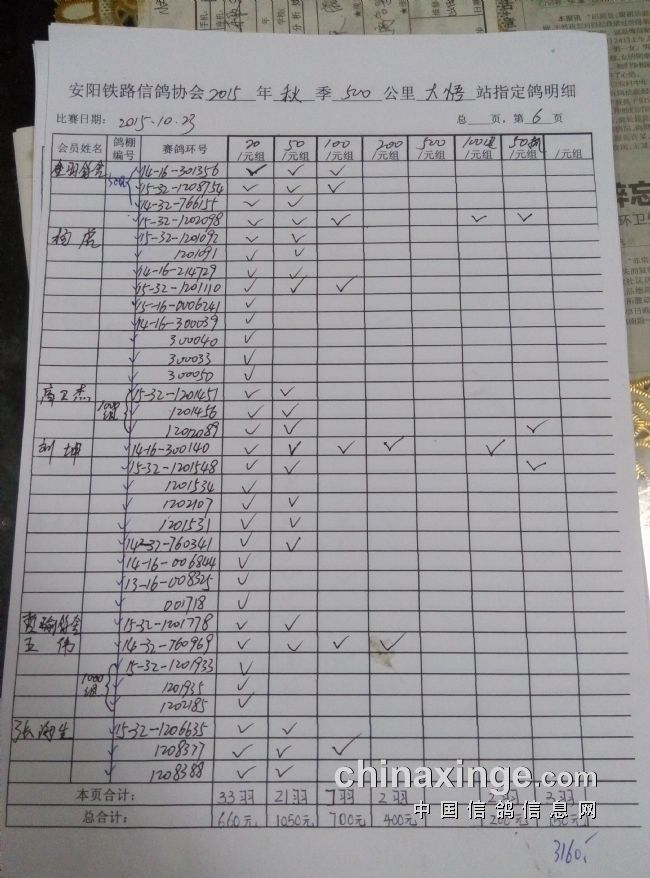 安阳铁路信鸽协会 2015 年 秋 季 500 公里 大悟 站指定鸽明细
比赛日期: 2015.10.23 总 页,第 6 页
会员姓名 鸽棚编号 赛鸽环号 20/元组 50/元组 100/元组 200/元组 500/元组 100 /元组 50 /元组 /元组
14-16-301356 ✓ ✓ ✓
15-32-1208754 ✓ ✓ ✓
14-32-766155 ✓ ✓
15-32-1202098 ✓ ✓ ✓ ✓ ✓
15-32-1201092 ✓ ✓
1201091 ✓ ✓
14-16-214729 ✓ ✓
15-32-1201110 ✓ ✓ ✓
15-16-0006241 ✓
14-16-300039 ✓
300040 ✓
300033 ✓
300050 ✓
1000组 15-32-1201451 ✓ ✓
1201456 ✓ ✓
1202089 ✓ ✓ ✓
刘坤 14-16-300140 ✓ ✓ ✓ ✓ ✓
15-32-1201548 ✓ ✓ ✓
1201534 ✓
1202107 ✓ ✓
1201531 ✓ ✓
14-32-760341 ✓ ✓
14-16-006844 ✓
13-16-008325 ✓
001718 ✓
15-32-1201778 ✓ ✓
王伟 14-32-760969 ✓ ✓ ✓ ✓
1000组 15-32-1201933 ✓
1201935 ✓
1202185 ✓
张海生 15-32-1206635 ✓ ✓
1208377 ✓ ✓ ✓
1208388 ✓ ✓
本页合计: 33羽 21羽 7羽 2羽 2羽 3羽
总合计: 660元 1050元 700元 400元 200元 150元
3160
chinaxinge.com
中国信鸽信息网